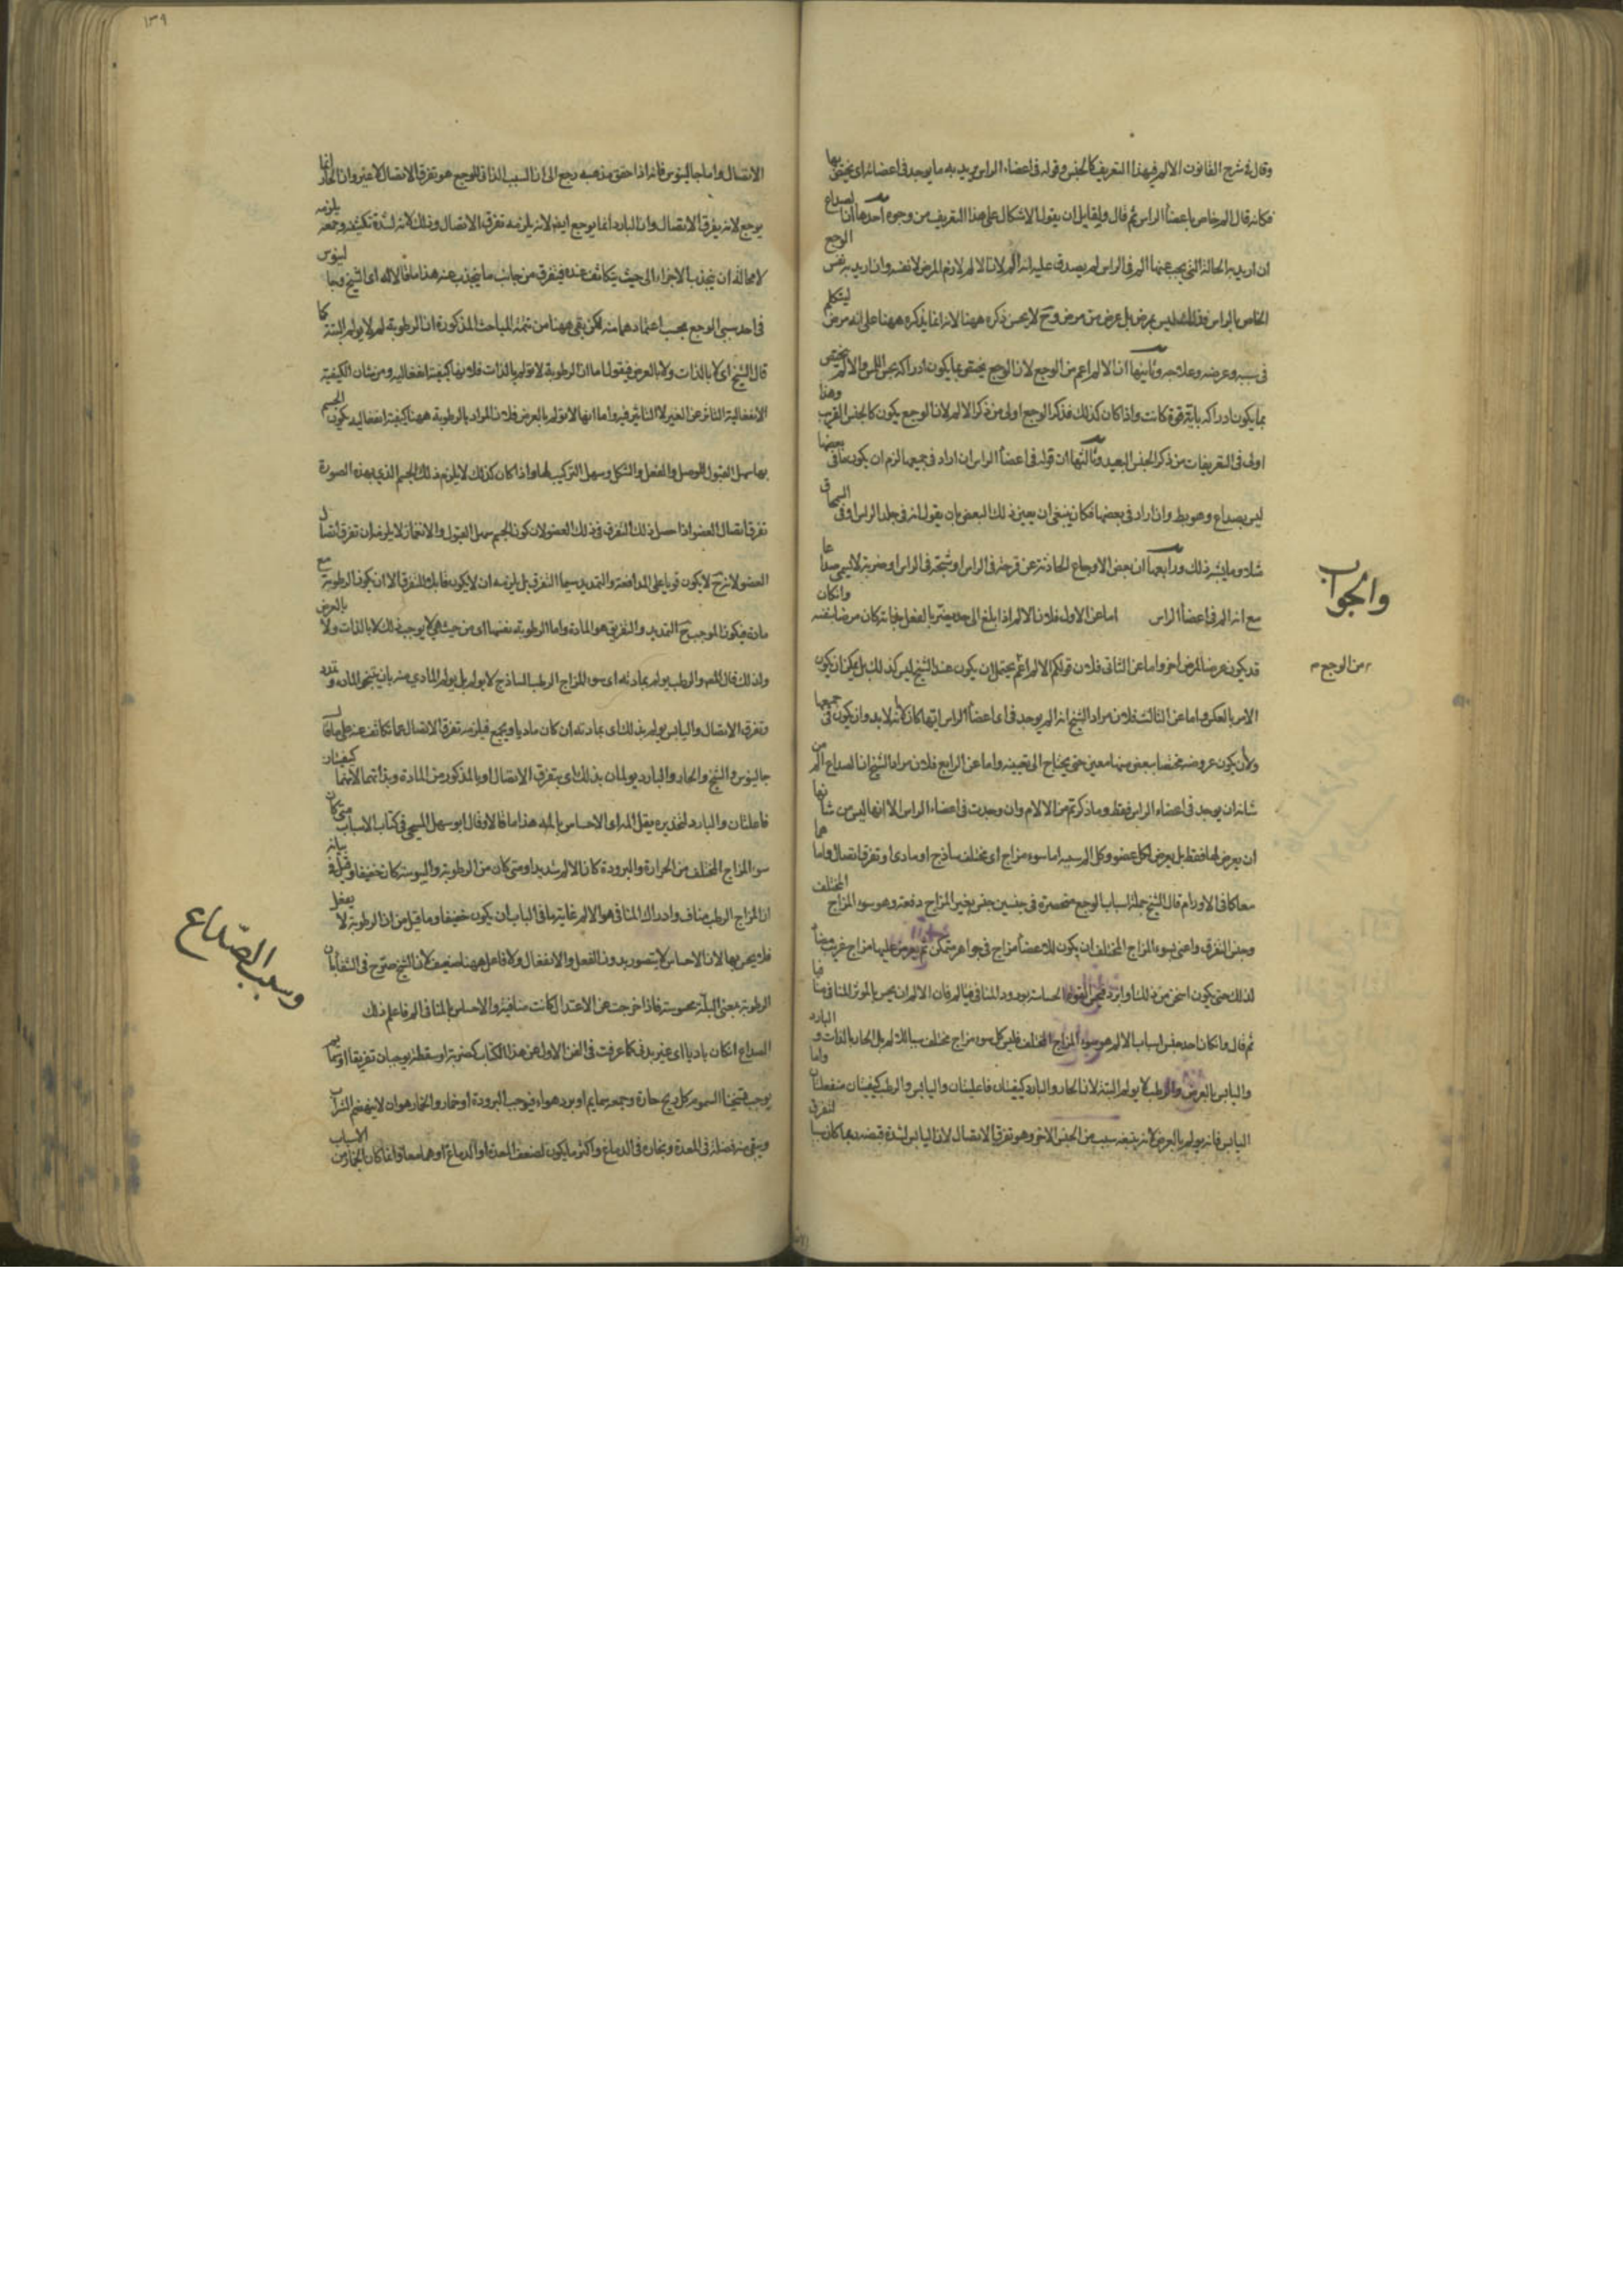 وقال في شرح القانون الالم في هذا التعريف كالجنس وقوله في اعضاء الراس يريد به ما يوجد في اعضائه اي يختص بها
فكانه قال الم خاص باعضا الراس ثم قال ولقايل ان يقول الاشكال على هذا التعريف من وجوه احدها ان الصداع
ان اريد به الحالة التي يجب عنها الم في الراس لم يصدق عليه انه الم لان الالم لازم المرض لا نفسه وان اريد به نفس الوجع
الخاص بالراس فذلك ليس بمرض بل عرض من مرض وح لا يحسن ذكره ههنا لانه انما يذكره ههنا على انه مرض ليتكلم
في سببه وعرضه وعلاجه وثانيها ان الالم اعم من الوجع لان الوجع يختص بما يكون ادراكه بحس اللمس والالم يختص
بما يكون ادراكه باية قوة كانت واذا كان كذلك فذكر الوجع اولى من ذكر الالم لان الوجع يكون كالجنس القريب وهذا
اولى في التعريفات من ذكر الجنس البعيد وثالثها ان قوله في اعضا الراس ان اراد في جميعها لزم ان يكون ما في بعضها
ليس بصداع وهو بط وان اراد في بعضها فكان ينبغي ان يعين ذلك البعض بان يقول انه في جلد الراس او في السمحاق
مثلا وما يشبه ذلك ورابعها ان بعض الاوجاع الحادثة عن قرحة في الراس او شجة في الراس او ضربة لا يسمى صداعا
مع انه الم في اعضا الراس اما عن الاول فلان الالم اذا بلغ الى حد يضر بالفعل بذاته كان مرضا بنفسه وان كان
والجواب
قد يكون عرضا لمرض اخر واما عن الثاني فلان قولكم الالم اعم يحتمل ان يكون عند الشيخ ليس كذلك بل يمكن ان يكون
من الوجع
الامر بالعكس واما عن الثالث فلان مراد الشيخ انه الم يوجد في اي اعضا الراس ايها كان لا انه لا بد وان يكون في جميعها
ولا ان يكون عروضه مختصا ببعض منها معين حتى يحتاج الى تعيينه واما عن الرابع فلان مراد الشيخ ان الصداع الم من
شانه ان يوجد في اعضاء الراس فقط وما ذكرتم من الالام وان وجدت في اعضاء الراس الا انها ليس من شانها
ان يعرض لها فقط بل يعرض لكل عضو وكل الم سببه اما سوء مزاج اي مختلف ساذج او مادي او تفرق اتصال واما هما
معا كما في الاورام قال الشيخ جملة اسباب الوجع منحصرة في جنسين جنس يغير المزاج دفعة وهو سوء المزاج المختلف
وجنس التفرق واعني بسوء المزاج المختلف ان يكون للاعضا مزاج في جواهر متمكن ثم يعرض عليها مزاج غريب مضاد
لذلك حتى يكون اسخن من ذلك او ابرد فيحس القوة الحساسة بورود المنافي فيالم فان الالم ان يحس بالموثر المنافي منافيا
ثم قال وان كان احد جنس اسباب الالم هو سوء المزاج المختلف فليس كل سوء مزاج مختلف سببا للالم بل الحار بالذات والبارد
واليابس بالعرض والرطب لا يولم البتة لان الحار والبارد كيفيتان فاعليتان واليابس والرطب كيفيتان منفعلتان واما
اليابس فانه يولم بالعرض لانه يتبعه سبب من الجنس الاخر وهو تفرق الاتصال لان اليابس لشدة قبضه ربما كان سببا لتفرق
١٣٩
الاتصال واما جالينوس فانه اذا حقق مذهبه رجع الى ان السبب الذاتي للوجع هو تفرق الاتصال لا غير وان الحار انما
يوجع لانه يفرق الاتصال وان البارد انما يوجع ايضا لانه يلزمه تفرق الاتصال وذلك لانه لشدة تكثيفه وجمعه يلزمه
لا محالة ان ينجذب الاجزاء الى حيث يتكاثف عنده فيتفرق من جانب ما ينجذب عنه هذا ما قالاه اي الشيخ وجالينوس
في احد سببي الوجع بحسب اعتمادهما لكن بقي ههنا من تتمة المباحث المذكورة ان الرطوبة لم لا يولم البتة كما
قال الشيخ اي لا بالذات ولا بالعرض فيقول اما ان الرطوبة لا تولم بالذات فلانها كيفية انفعالية ومن شان الكيفية
الانفعالية التاثر عن الغير لا التاثير فيه واما انها لا تولم بالعرض فلان المراد بالرطوبة ههنا كيفية انفعالية يكون الجسم
بها سهل القبول للوصل والفصل والشكل وسهل التركيب لها واذا كان كذلك لا يلزم ذلك الجسم الذي بهذه الصورة
تفرق اتصال العضو اذا حصل ذلك التفرق في ذلك العضو لان كون الجسم سهل القبول والانغماز لا يلزمه ان تفرق اتصال
العضو لانه ح لا يكون قويا على المدافعة والتمديد سيما التفرق بل يلزمه ان لا يكون قابلا للتفرق الا ان يكون الرطوبة مع
مادة فيكون الموجب ح التمديد والتفريق هو المادة واما الرطوبة نفسها اي من حيث هي لا يوجب ذلك لا بالذات ولا بالعرض
ولذلك قال المص والرطب يولم بمادته اي سوء المزاج الرطب الساذج لا يولم بل يولم المادي منه بان يتبخر المادة وتمدد
وتفرق الاتصال واليابس يولم بذلك اي بمادته ان كان ماديا ويجمع فيلزمه تفرق الاتصال عما تكاثف عنه على ما قال
جالينوس والشيخ والحار والبارد يولمان بذلك اي بتفرق الاتصال او بالمذكور من المادة وبذاتهما لانهما كيفيتان
فاعلتان والبارد لتخديره يقل الم اي الاحساس بالمه هذا ما قالا وقال ابو سهل المسيحي في كتاب الاسباب متى كان
سوء المزاج المختلف من الحرارة والبرودة كان الالم شديدا ومتى كان من الرطوبة واليبوسة كان خفيفا وقيل في بيانه
ان المزاج الرطب مناف وادراك المنافي هو الالم غاية ما في الباب ان يكون خفيفا وما قيل من ان الرطوبة لا يفعل
فلا يحس بها لان الاحساس لا يتصور بدون الفعل والانفعال ولا فاعل ههنا ضعيف لان الشيخ صرح في الشفا بان
الرطوبة بمعنى البلة محسوسة فاذا خرجت عن الاعتدال كانت منافية والاحساس بالمنافي الم فاعلم ذلك
وسبب الصداع
الصداع ان كان باديا اي غير بدني كما عرفت في الفن الاول من هذا الكتاب كضربة او سقطة يوجبان تفريقا او سمايم
يوجب تسخينا السموم كل ريح حارة وجمعه سمايم او برد هواء فيوجب البرودة او خمار والخمار هو ان لا ينهضم الشراب
ويبقى منه فضلة في المعدة وبخاره في الدماغ واكثر ما يكون لضعف المعدة او الدماغ او هما معا وانما كان الخمار من الاسباب